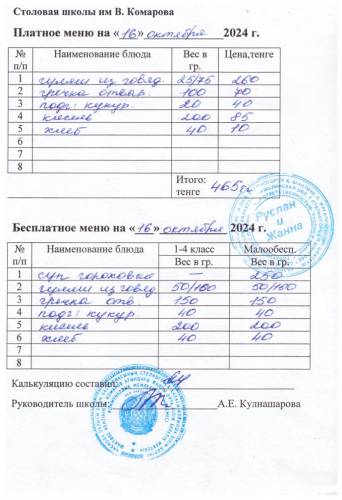 Столовая школы им В. Комарова
Платное меню на «16» октября 2024 г.
№ п/п Наименование блюда Вес в гр. Цена,тенге
1 гуляш из говяд. 25/75 260
2 гречка отвар. 100 70
3 подг: кукур. 20 40
4 кисель 200 85
5 хлеб 40 10
6
7
8
Итого: тенге 465 тг
Руслан и Жанна
Бесплатное меню на «16» октября 2024 г.
№ п/п Наименование блюда 1-4 класс Малообесп.
Вес в гр. Вес в гр.
1 суп гороховый — 250
2 гуляш из говяд 50/100 50/100
3 гречка отв 150 150
4 подг: кукур 40 40
5 кисель 200 200
6 хлеб 40 40
7
8
Калькуляцию составил:
Руководитель школы: А.Е. Кулнашарова